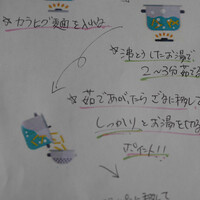 ★カラヒグ麺を入れる
★沸とうしたお湯で
2〜3分茹でる
★茹であがったら ざるに移して
しっかりとお湯を切る
ポイント!!
に移して